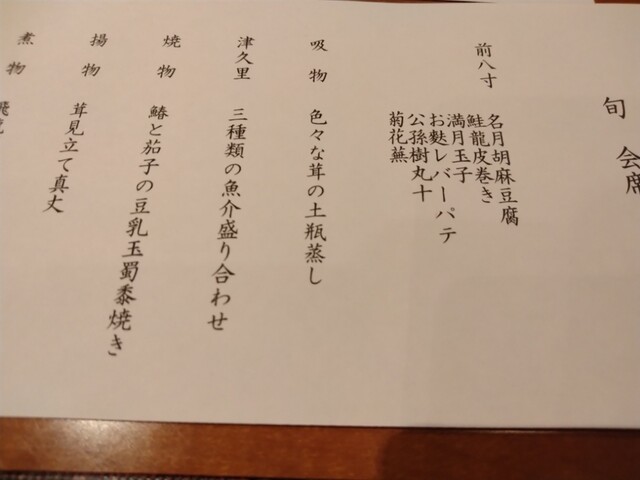 旬 会席
前八寸
名月胡麻豆腐
鮭龍皮巻き
満月玉子
お麩レバーパテ
公孫樹丸十
菊花蕪
吸物 色々な茸の土瓶蒸し
津久里 三種類の魚介盛り合わせ
焼物 鰆と茄子の豆乳玉蜀黍焼き
揚物 茸見立て真丈
煮物